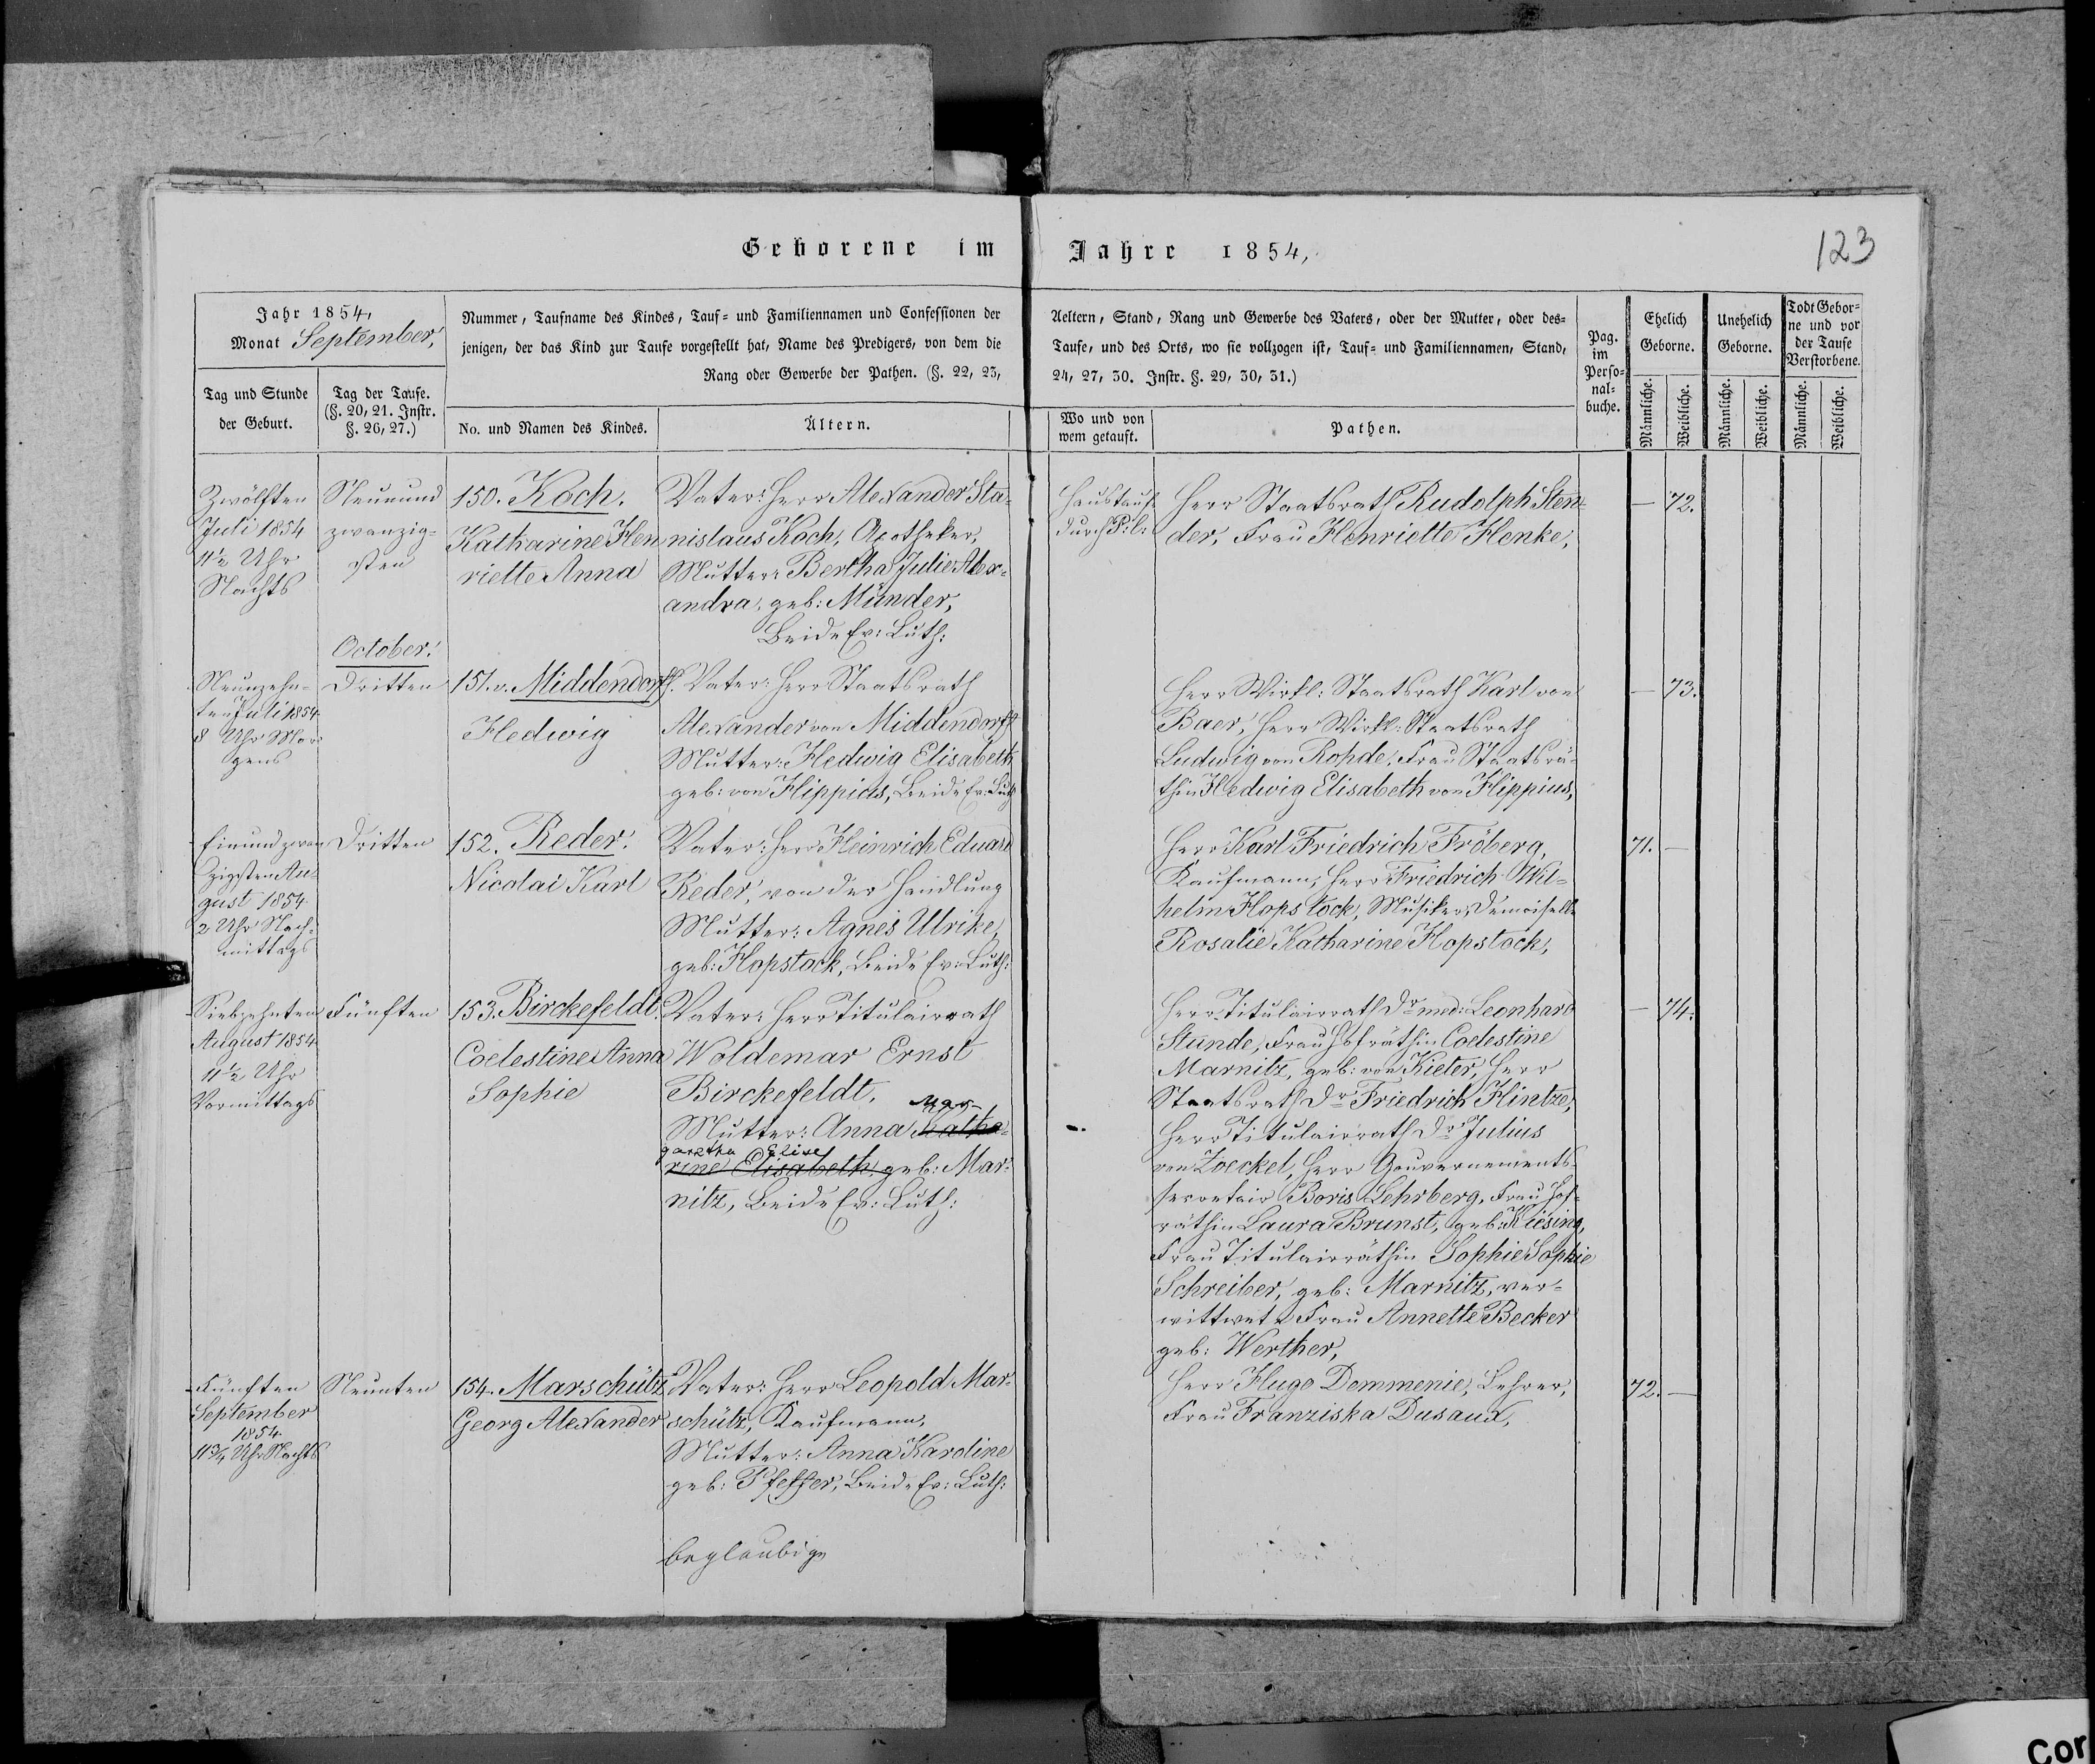 Geborene im Jahre 1854,
123
Jahr 1854,
Monat September,
Tag und Stunde
der Geburt.
Tag der Taufe.
(§. 20, 21. Instr.
§. 26, 27.)
Nummer, Taufname des Kindes, Tauf- und Familiennamen und Confessionen der
jenigen, der das Kind zur Taufe vorgestellt hat, Name des Predigers, von dem die
Rang oder Gewerbe der Pathen. (§. 22, 23,
No. und Namen des Kindes.
Ältern.
Aeltern, Stand, Rang und Gewerbe des Vaters, oder der Mutter, oder des-
Taufe, und des Orts, wo sie vollzogen ist, Tauf- und Familiennamen, Stand,
24, 27, 30. Instr. §. 29, 30, 31.)
Wo und von
wem getauft.
Pathen.
Pag.
im
Perso-
nal-
buche.
Ehelich
Geborne.
Unehelich
Geborne.
Todt Gebor-
ne und vor
der Taufe
Verstorbene.
Männliche.
Weibliche.
Männliche.
Weibliche.
Männliche.
Weibliche.
Zwölften
Juli 1854
11½ Uhr
Nachts
Neunund
zwanzig-
sten
150. Koch.
Katharine Hen
riette Anna
Vater: Herr Alexander Sta-
nislaus Koch, Apotheker,
Mutter: Bertha Julie Alex-
andra, geb: Münder,
Beide Ev: Luth:
Haustaufe
durch P: l:
Herr Staatsrath Rudolph Sten-
der, Frau Henriette Henke,
— 72.
October.
Neunzehn-
ten Juli 1854
8 Uhr Mor-
gens
Dritten
151. v. Middendorff.
Hedwig
Vater: Herr Staatsrath
Alexander von Middendorff
Mutter: Hedwig Elisabeth
geb: von Hippius, Beide Ev: Luth
Herr Wirkl: Staatsrath Karl von
Baer, Herr Wirkl: Staatsrath
Ludwig von Rohde, Frau Staatsrä-
thin Hedwig Elisabeth von Hippius,
— 73.
Einundzwan
zigsten Au-
gust 1854
2 Uhr Nach-
mittags
Dritten
152. Reder.
Nicolai Karl
Vater: Herr Heinrich Eduard
Reder, von der Handlung
Mutter: Agnes Ulrike,
geb: Hopstock, Beide Ev: Luth:
Herr Karl Friedrich Fröberg,
Kaufmann, Herr Friedrich Wil-
helm Hopstock, Musiker, Demoiselle
Rosalie Katharine Hopstock,
71. —
Siebzehnten
August 1854
11½ Uhr
Vormittags
Fünften
153. Birckefeldt.
Coelestine Anna
Sophie
Vater: Herr Titulairrath
Woldemar Ernst
Birckefeldt,
Mar-
Mutter: Anna Katha-
garetha Elise
rine Elisabeth geb: Mar-
nitz, Beide Ev: Luth:
Herr Titulairrath Dr med: Leonhard
Stunde, Frau Hofräthin Coelestine
Marnitz, geb: von Kieter, Herr
Staatsrath Dr Friedrich Hintze,
Herr Titulairrath Dr Julius
von Zoeckel, Herr Gouvernements-
secretair Boris Lehrberg, Frau Hof-
räthin Laura Brunst, geb: Kiesing,
Frau Titulairräthin Sophie Sophie
Schreiber, geb: Marnitz, ver-
wittwete Frau Annette Becker
geb: Werther,
— 74.
Fünften
September
1854
11¾ Uhr Nachts
Neunten
154. Marschütz
Georg Alexander
Vater: Herr Leopold Mar-
schütz, Kaufmann,
Mutter: Anna Karoline
geb: Pfeffer, Beide Ev: Luth:
Herr Hugo Dommenie, Lehrer,
Frau Franziska Dusaux,
72. —
beglaubige
Cor